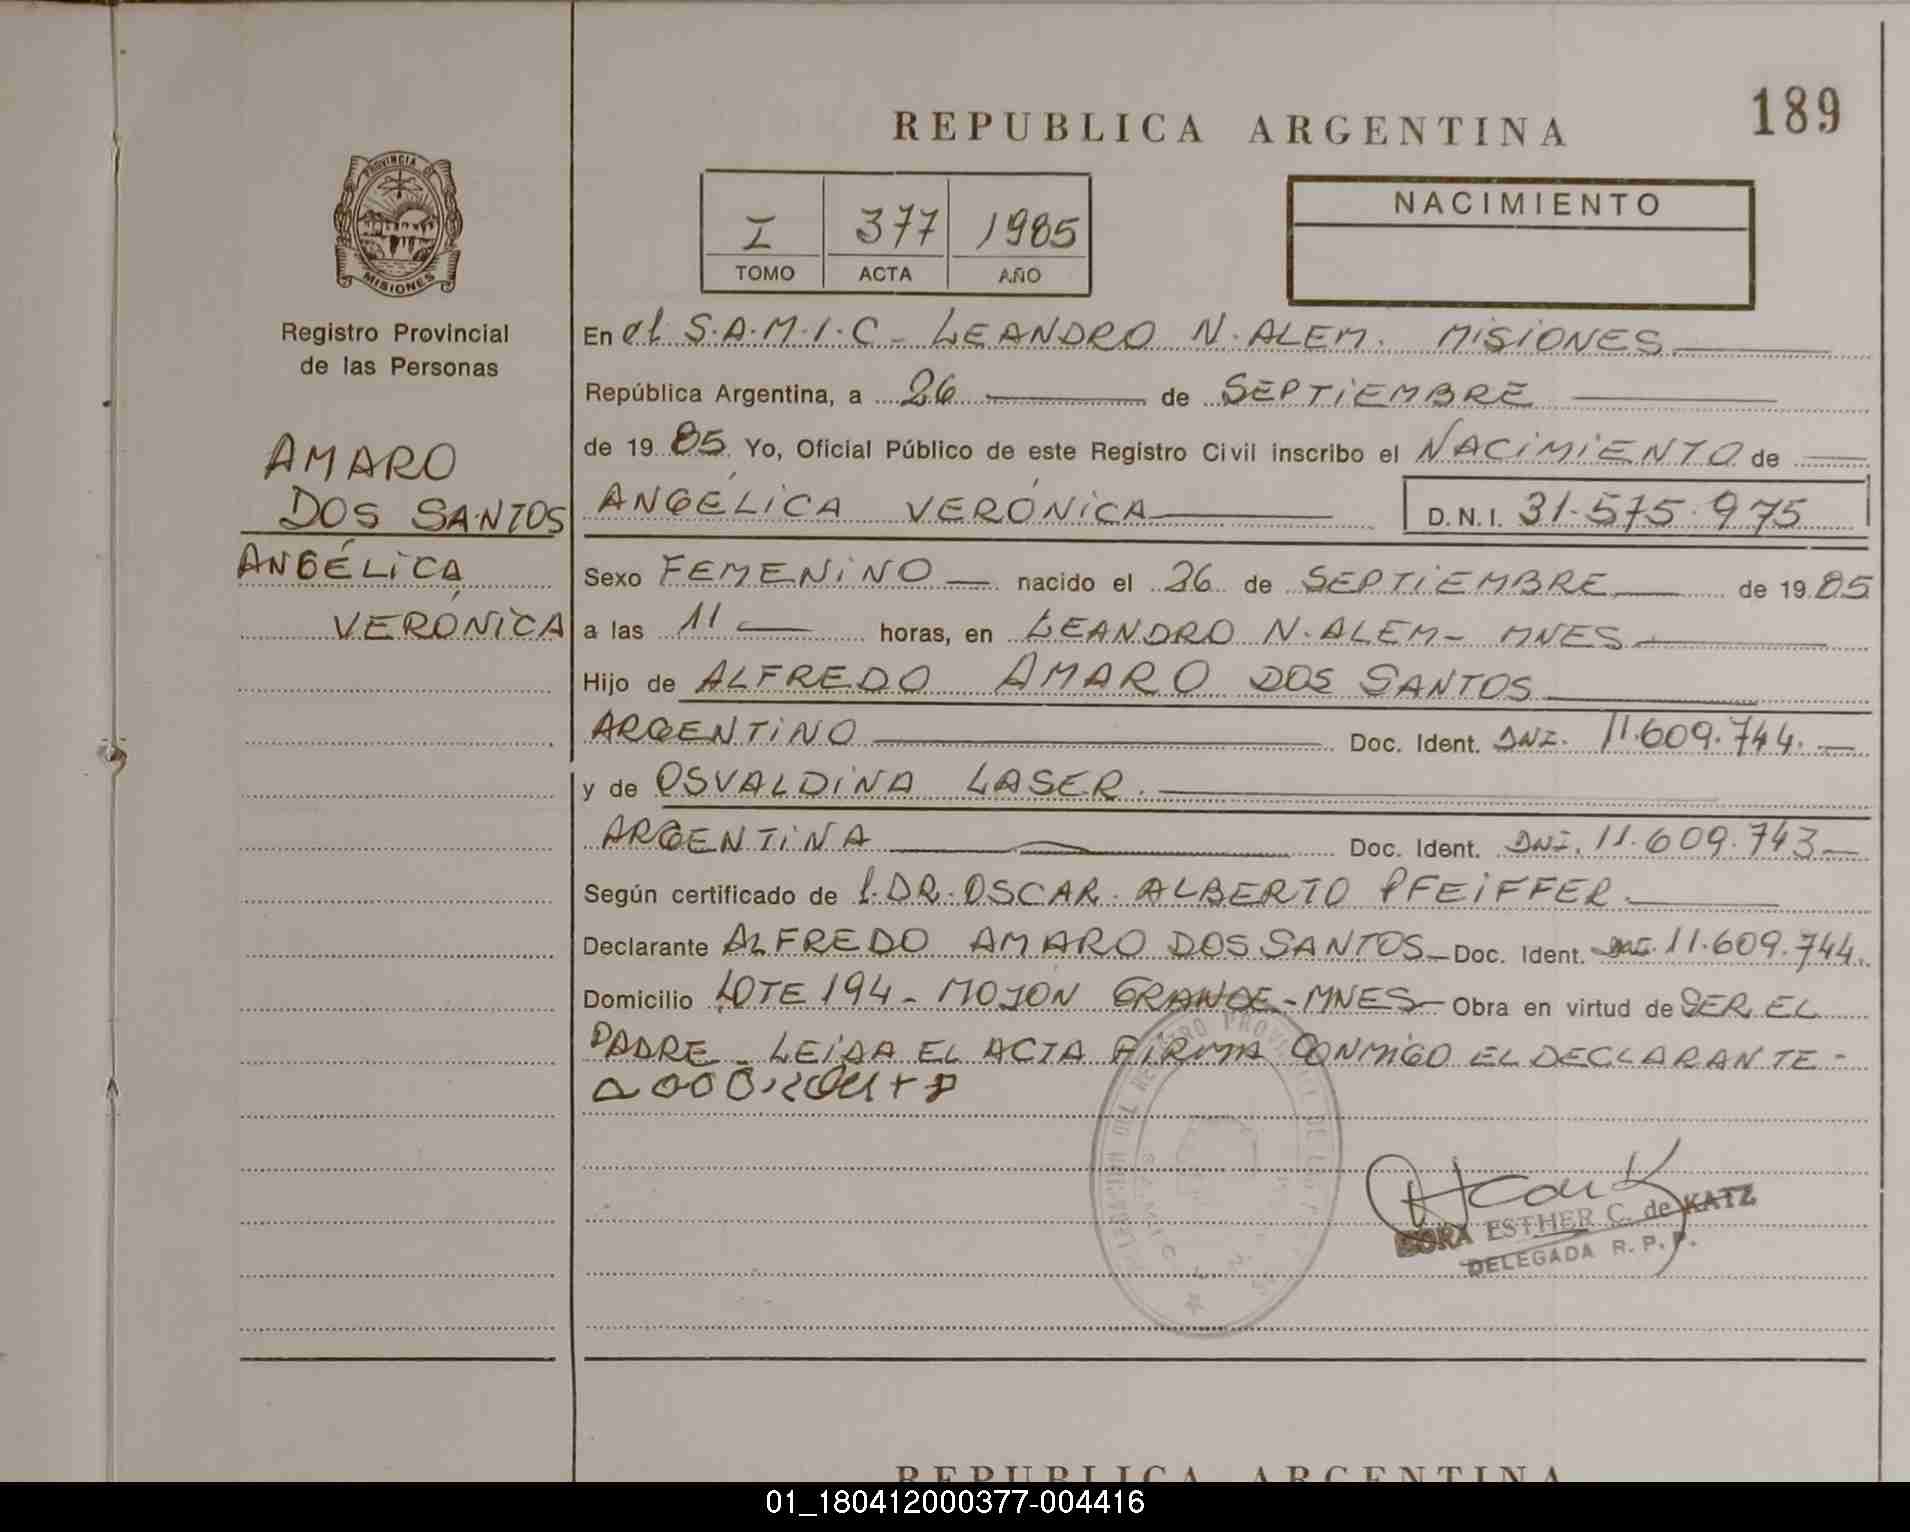 189
REPUBLICA ARGENTINA
PROVINCIA DE
MISIONES
I 377 1985
TOMO ACTA AÑO
NACIMIENTO
Registro Provincial
de las Personas
AMARO
DOS SANTOS
ANGÉLICA
VERÓNICA
En el S.A.M.I.C - LEANDRO N. ALEM. MISIONES
República Argentina, a 26 de SEPTIEMBRE
de 1985. Yo, Oficial Público de este Registro Civil inscribo el NACIMIENTO de
ANGÉLICA VERÓNICA D.N.I. 31.575.975
Sexo FEMENINO nacido el 26 de SEPTIEMBRE de 1985
a las 11 horas, en LEANDRO N. ALEM - MNES
Hijo de ALFREDO AMARO DOS SANTOS
ARGENTINO Doc. Ident. DNI. 11.609.744.
y de OSVALDINA LASER.
ARGENTINA Doc. Ident. DNI. 11.609.743
Según certificado de l. DR. OSCAR ALBERTO PFEIFFER
Declarante ALFREDO AMARO DOS SANTOS Doc. Ident. DNI. 11.609.744.
Domicilio LOTE 194 - MOJON GRANDE - MNES Obra en virtud de SER EL
PADRE - LEIDA EL ACTA FIRMA CONMIGO EL DECLARANTE -
DELEGACION DEL REGISTRO PROVINCIAL DE LAS
ESTHER C. de KATZ
DELEGADA R. P. P.
REPUBLICA ARGENTINA
01_180412000377-004416